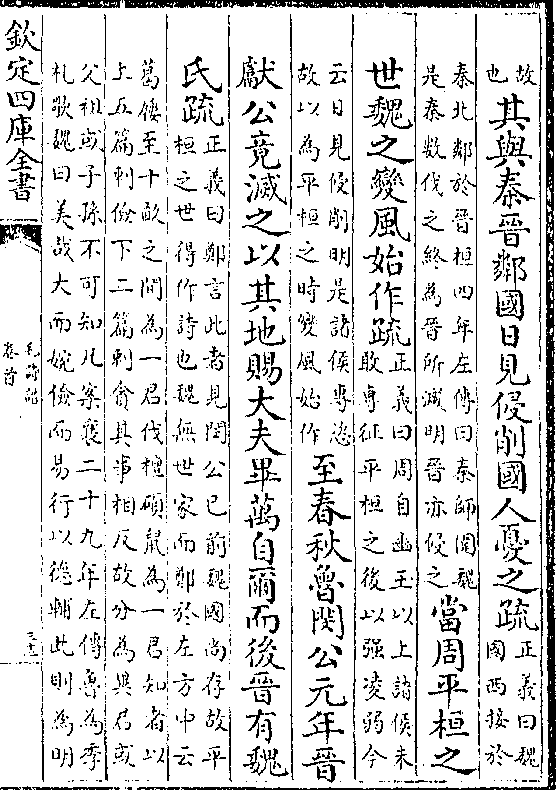 故
也
其與秦晉鄰國日見侵削國人憂之疏
正義曰魏
國西接於
秦北鄰於晉桓四年左傳曰秦師圍魏
是秦數伐之終為晉所滅明晉亦侵之
當周平桓之
世魏之變風始作疏
正義曰周自幽王以上諸侯未
敢專征平桓之後以强凌弱今
云日見侵削明是諸侯專恣
故以為平桓之時變風始作
至春秋魯閔公元年晉
獻公竟滅之以其地賜大夫畢萬自爾而後晉有魏
氏疏
正義曰鄭言此者見閔公已前魏國尚存故平
桓之世得作詩也魏無世家而鄭於左方中云
葛屨至十畝之間為一君伐檀碩鼠為一君知者以
上五篇刺儉下二篇刺貪其事相反故分為異君或
父祖或子孫不可知凡案襄二十九年左傳魯為季
札歌魏曰美哉大而婉儉而易行以德輔此則為明
欽定四庫全書
毛詩
卷首